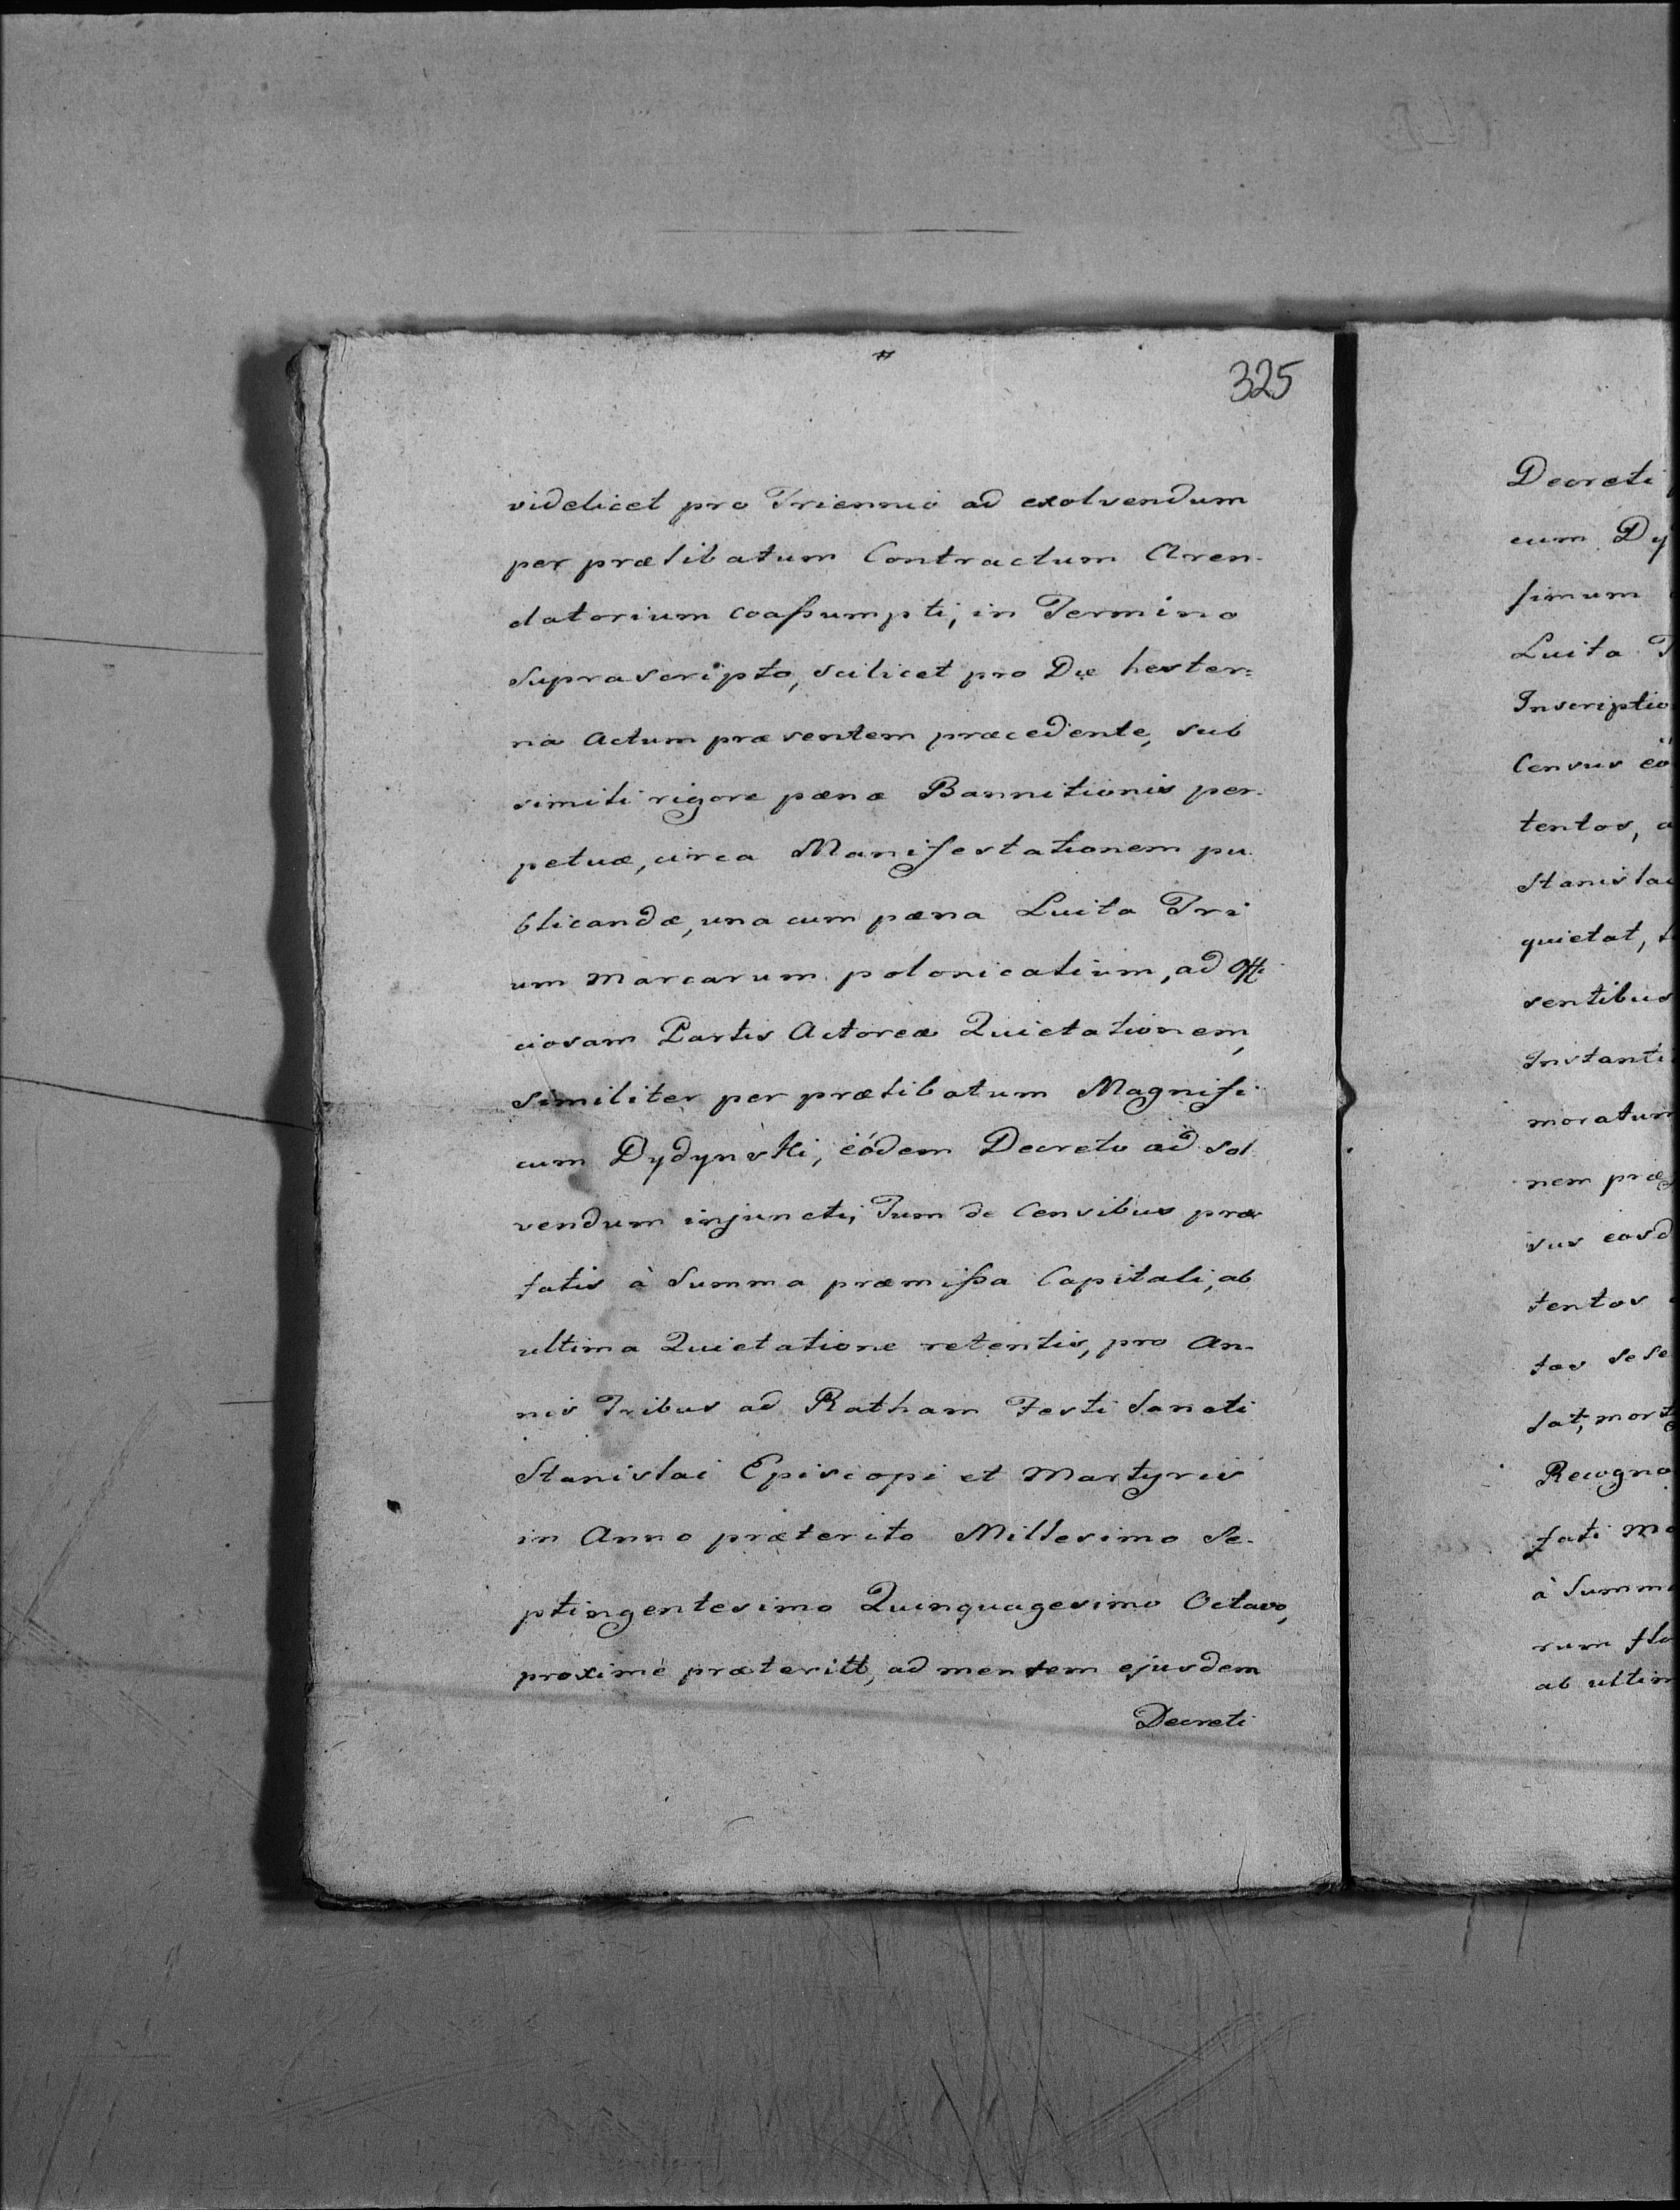 325
videlicet pro Triennio ad exolvendum
per prælibatum Contractum Aren-
datorium coaßumpti, in Termino
Suprascripto, scilicet pro Die hester=
na Actum præsentem præcedente, sub
simili rigore pœnæ Bannitionis per-
petuæ, circa Manifestationem pu
blicandæ, una cum pæna Luita Tri
um Marcarum polonicalium, ad Offi
ciosam Partis Actoreæ Quietationem,
Similiter per prælibatum Magnifi
cum Dydynski, eódem Decreto ad sol
vendum injuncti, Tum de Censibus præ
fatis à Summa præmißa Capitali, ab
ultima Quietatione retentis, pro An-
nis Tribus ad Ratham Festi Sancti
Stanislai Episcopi et Martyris
in Anno præterito Millesimo Se-
ptingentesimo Quinquagesimo Octavo,
proxime præteritt, ad mentem ejusdem
Decreti
Decreti
cum Dy
simum
Luita T
Inscriptio
Census eó
tentos, a
Stanislai
quietat,
sentibus
Instanti
moratum
nem præ
sus eosd
tentos
tas sese
sat, mort
Recogno
fati Ma
à Summa
rum flo
ab ultim